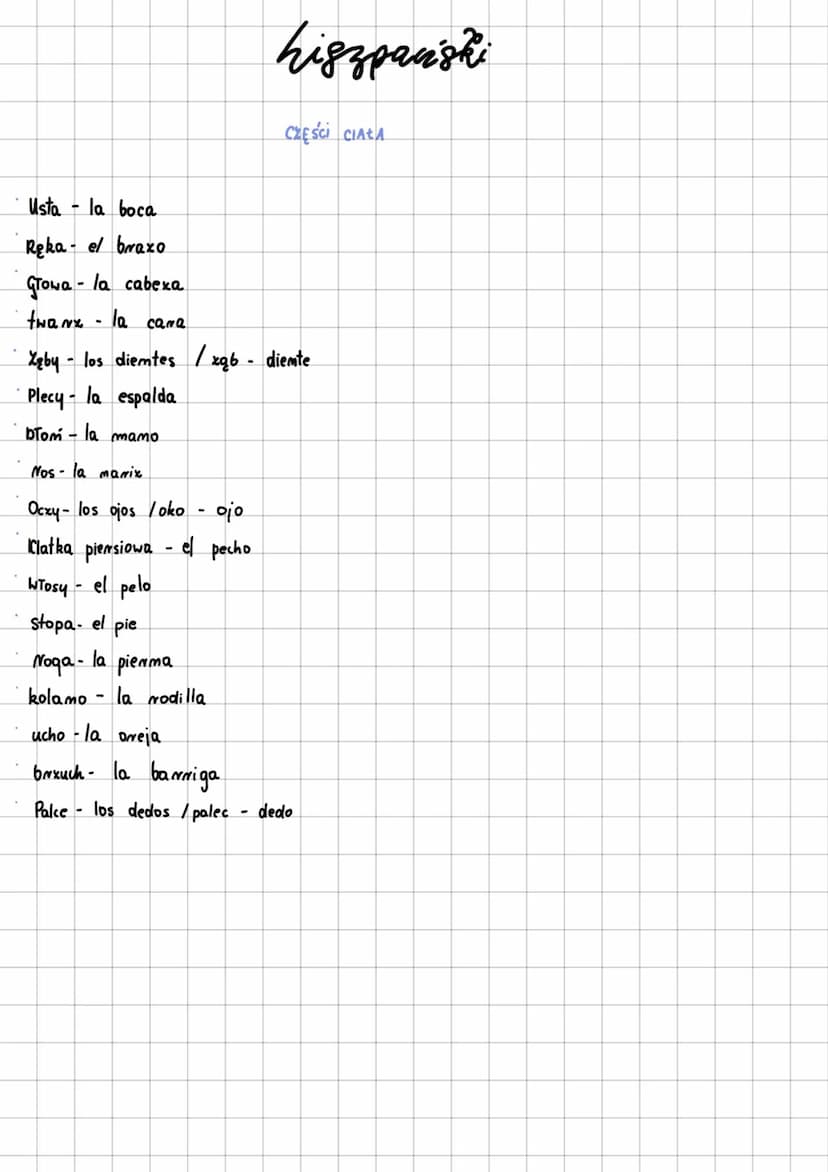 hiszpański
CZĘŚCI CIAŁA
Usta - la boca
Ręka - el brazo
Głowa - la cabeza
twarz - la cara
Zęby - los dientes / ząb - diente
Plecy - la espalda
Dłoń - la mano
Nos - la nariz
Oczy - los ojos / oko - ojo
Klatka piersiowa - el pecho
Włosy - el pelo
Stopa - el pie
Noga - la pierna
kolano - la rodilla
ucho - la oreja
brzuch - la barriga
Palce - los dedos / palec - dedo